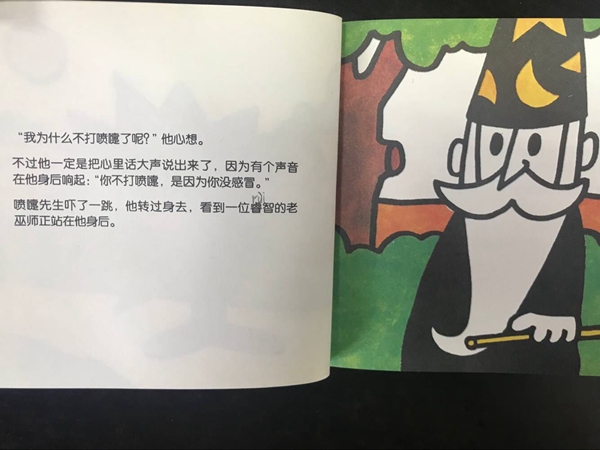 “我为什么不打喷嚏了呢？”他心想。
不过他一定是把心里话大声说出来了，因为有个声音
在他身后响起：“你不打喷嚏，是因为你没感冒。”
喷嚏先生吓了一跳，他转过身去，看到一位睿智的老
巫师正站在他身后。